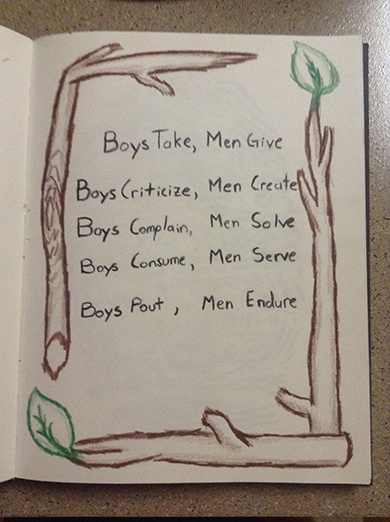 Boys Take, Men Give
Boys Criticize, Men Create
Boys Complain, Men Solve
Boys Consume, Men Serve
Boys Pout, Men Endure